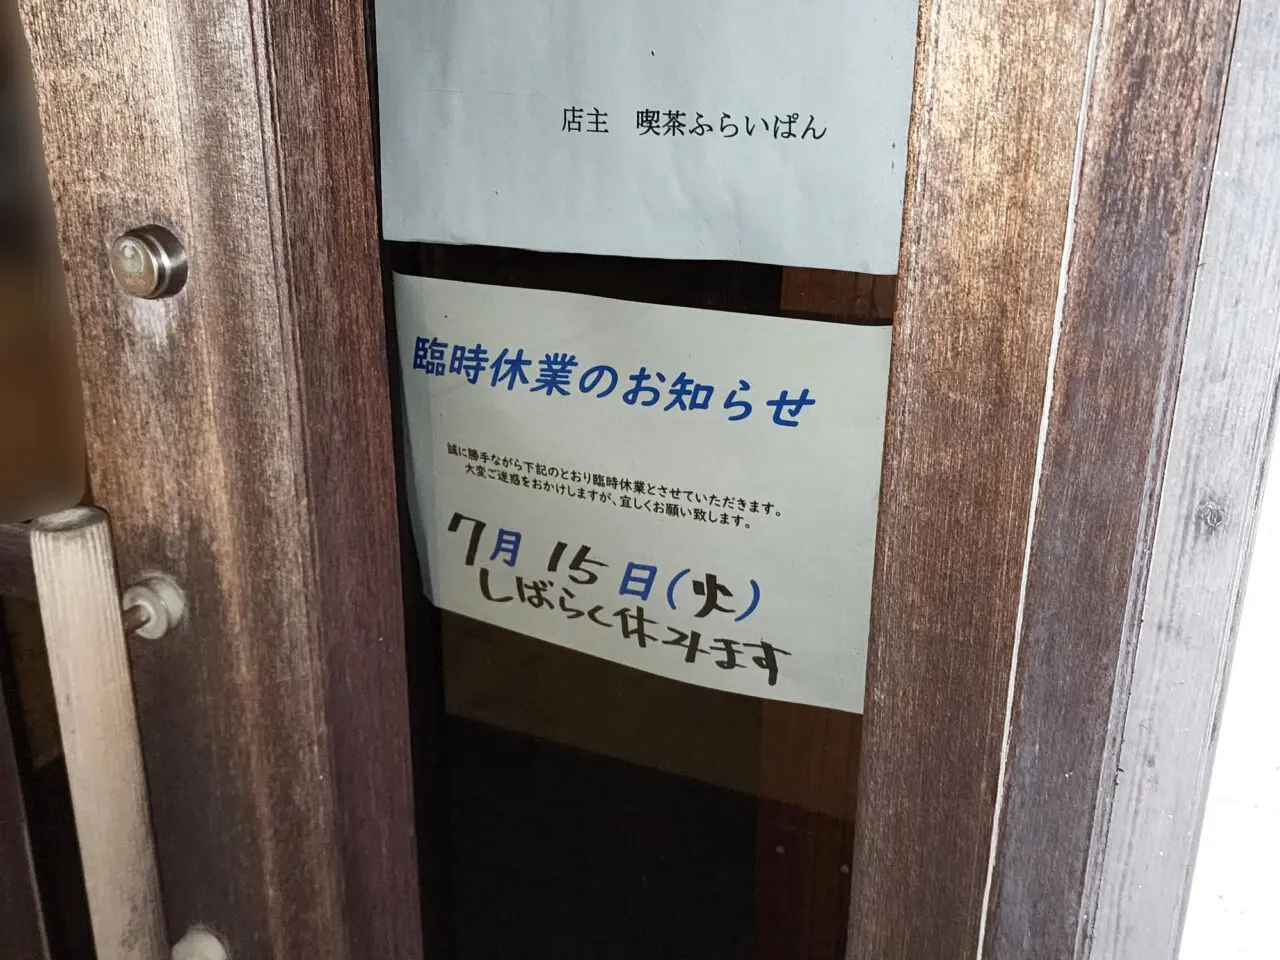 店主　喫茶ふらいぱん
臨時休業のお知らせ
誠に勝手ながら下記のとおり臨時休業とさせていただきます。
大変ご迷惑をおかけしますが、宜しくお願い致します。
7月15日(火)
しばらく休みます